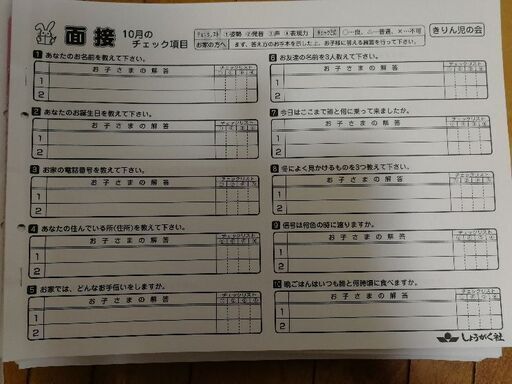 面接 10月の
チェック項目
チェックリスト ①姿勢 ②発音 ③声 ④表現力
チェック記号 ○…良、△…普通、×…不可
お家の方へ まず、答え方のお手本を示した上、お子様に答える練習を行って下さい。
きりん児の会
1 あなたのお名前を教えて下さい。
お子さまの解答
チェックリスト
① ② ③ ④
1
2
2 あなたのお誕生日を教えて下さい。
お子さまの解答
チェックリスト
① ② ③ ④
1
2
3 お家の電話番号を教えて下さい。
お子さまの解答
チェックリスト
① ② ③ ④
1
2
4 あなたの住んでいる所(住所)を教えて下さい。
お子さまの解答
チェックリスト
① ② ③ ④
1
2
5 お家では、どんなお手伝いをしますか。
お子さまの解答
チェックリスト
① ② ③ ④
1
2
6 お友達の名前を3人教えて下さい。
お子さまの解答
チェックリスト
① ② ③ ④
1
2
7 今日はここまで誰と何に乗って来ましたか。
お子さまの解答
チェックリスト
① ② ③ ④
1
2
8 冬によく見かけるものを3つ教えて下さい。
お子さまの解答
チェックリスト
① ② ③ ④
1
2
9 信号は何色の時に渡りますか。
お子さまの解答
チェックリスト
① ② ③ ④
1
2
10 晩ごはんはいつも誰と何時頃に食べますか。
お子さまの解答
チェックリスト
① ② ③ ④
1
2
しょうがく社